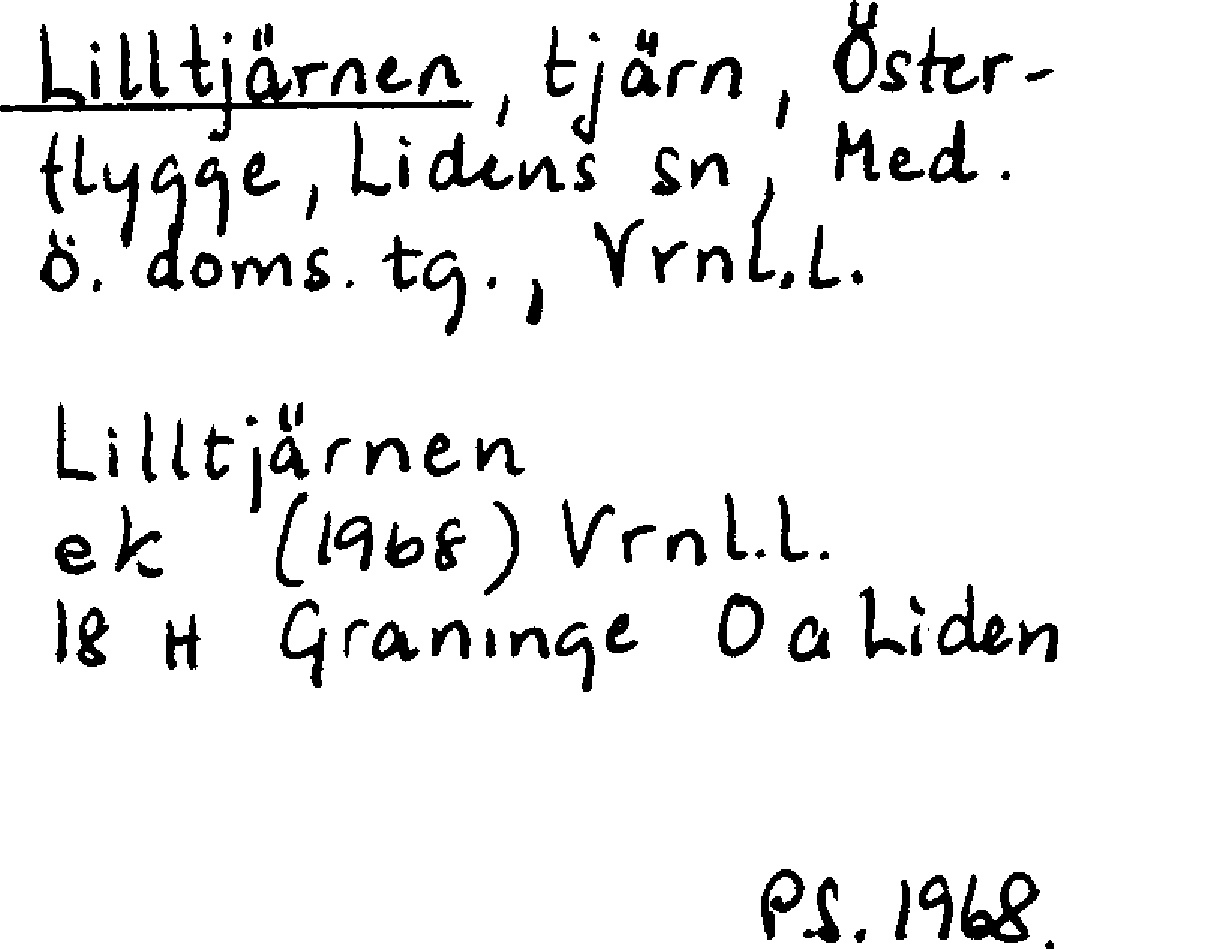 Lilltjärnen, tjärn, Öster-
flygge, Lidens sn, Med.
ö. doms. tg., Vrnl.l.
Lilltjärnen
ek (1968) Vrnl.l.
18 H Graninge O a Liden
P.S. 1968.